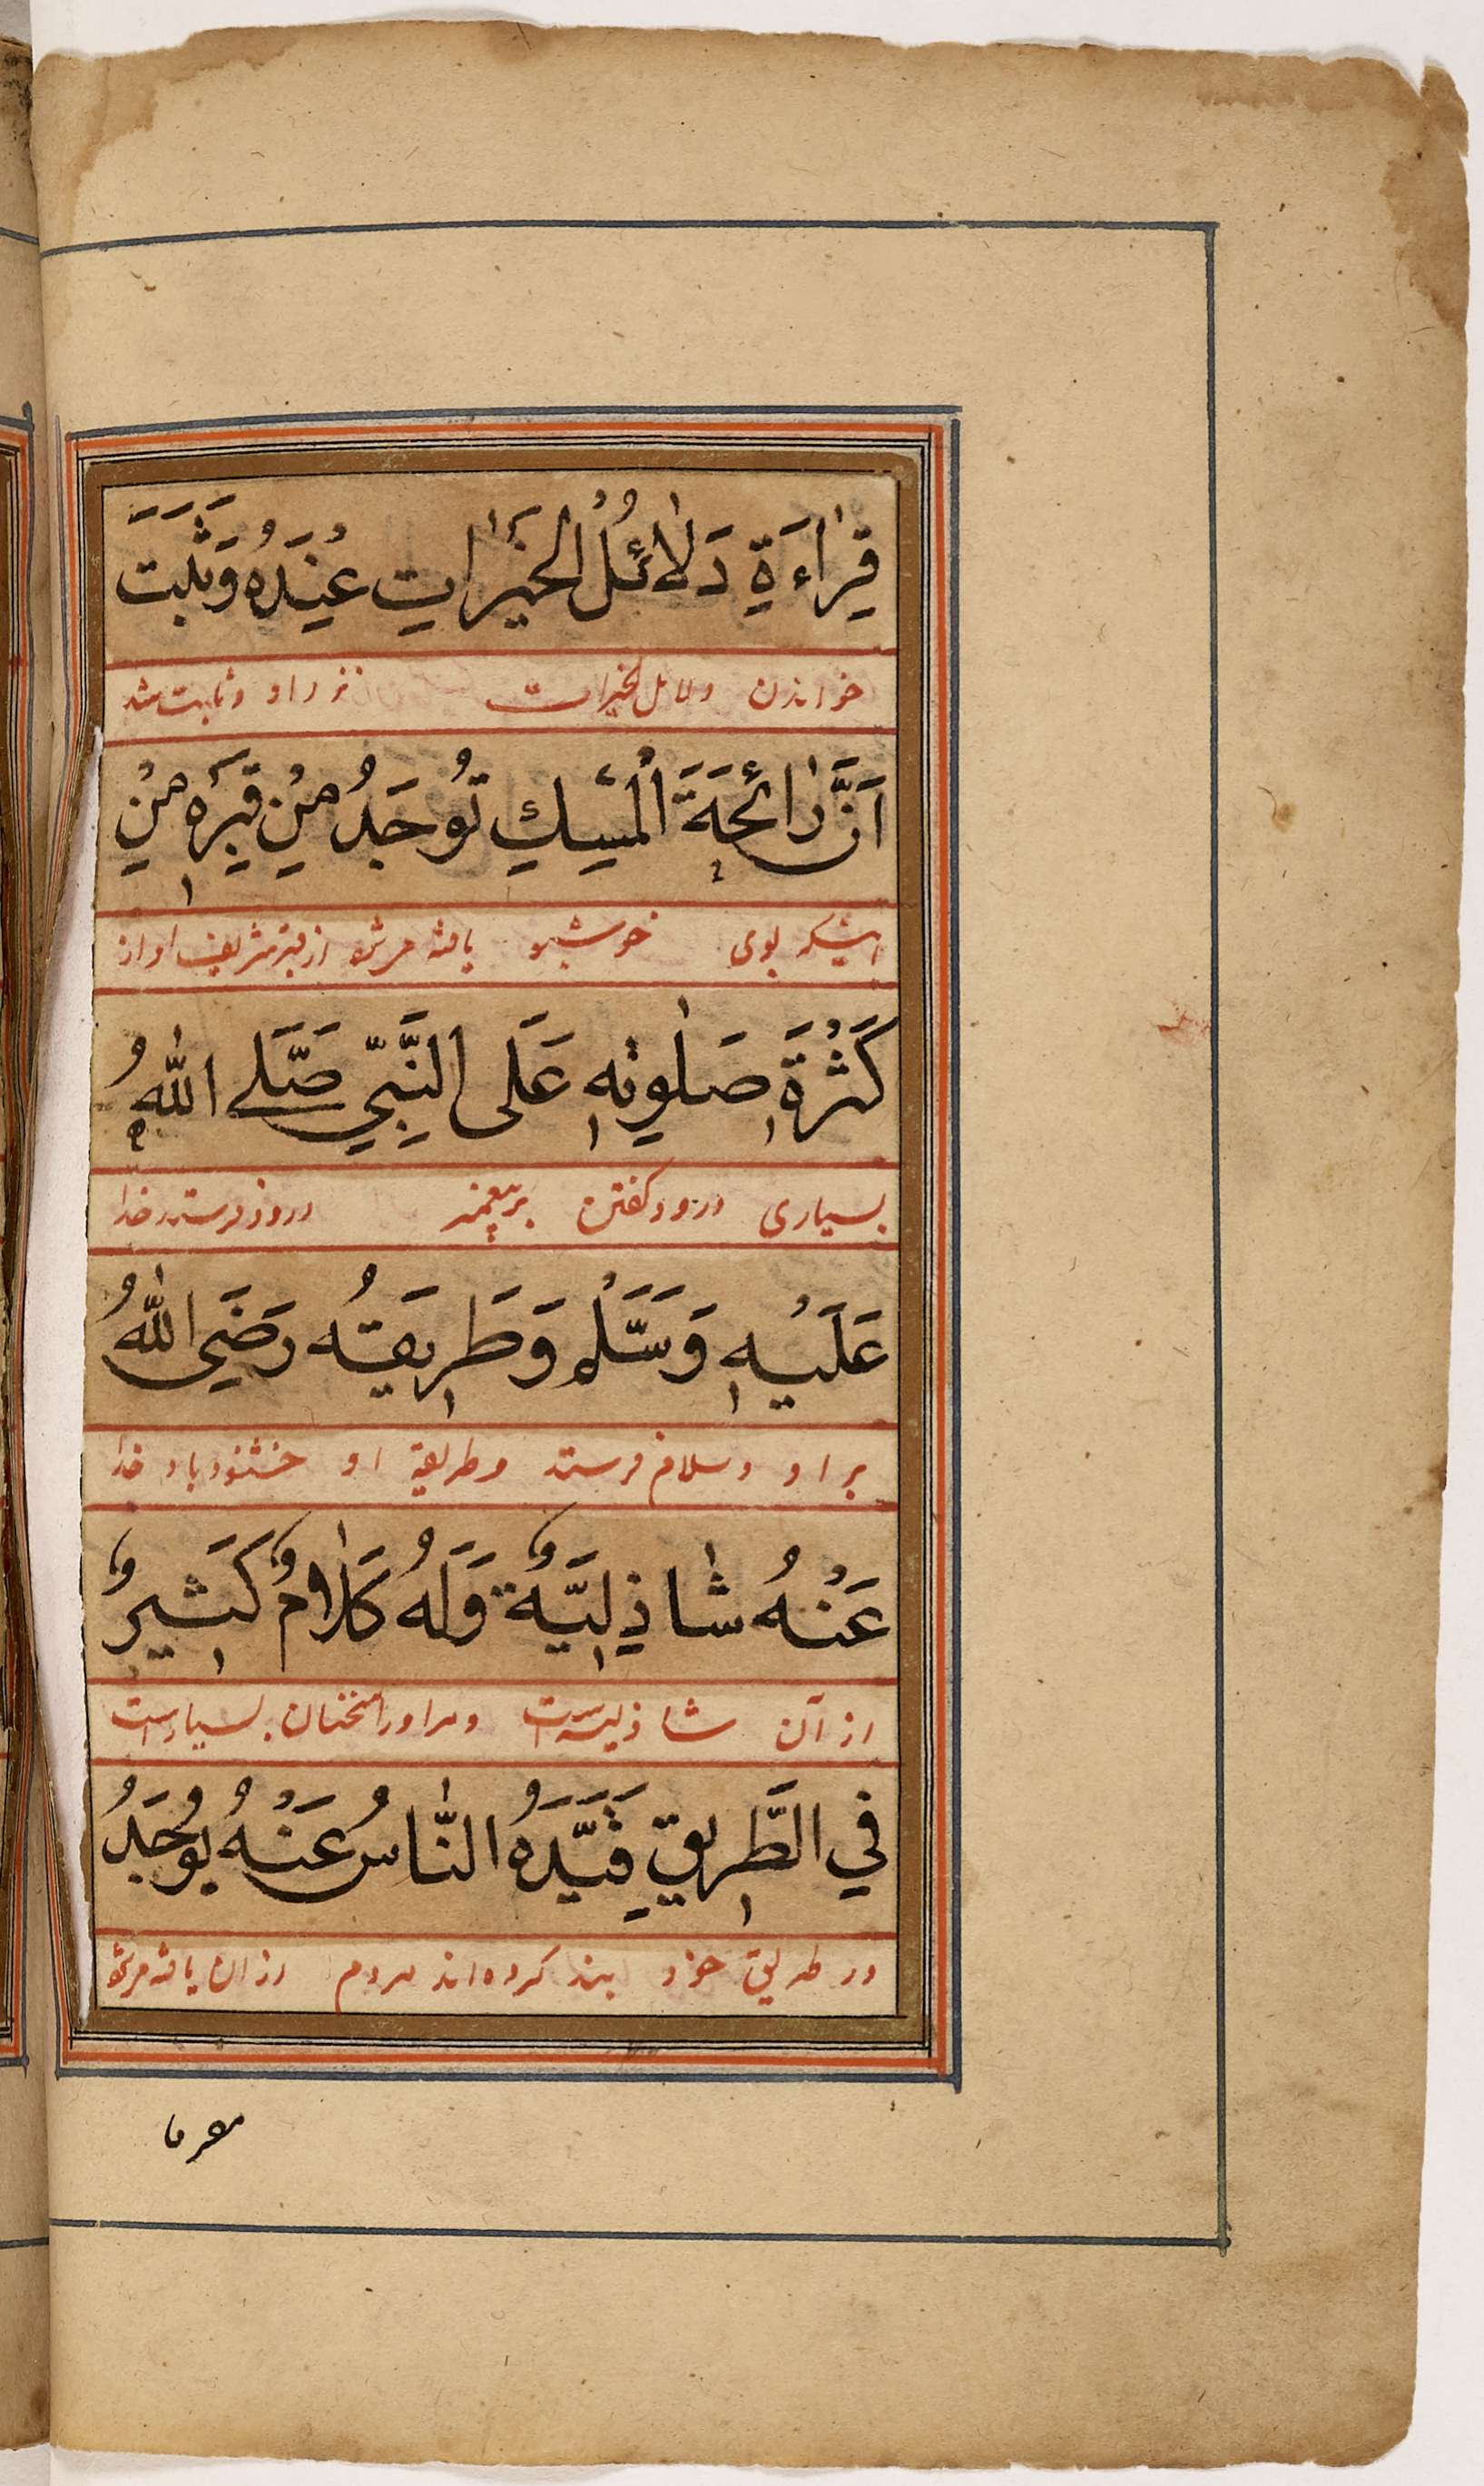 قِرَاءَةِ دَلَائُلْ الخَيْرَاتِ عِنْدَهُ وَثَبَتَ
خواندن دلائل لخیرات نزد او و ثابت شد
اَنَّ رَائِحَةَ الْمِسْكِ تُوجَدُ مِنْ قَبْرِهِ مِنْ
اینکه بوی خوشبو یافته میشود از قبر شریف او از
كَثْرَةِ صَلٰوتِهِ عَلَى النَّبِيِّ صَلَّى اللّٰهُ
بسیاری درود گفتن بر پیغمبر درود فرستد خدا
عَلَيْهِ وَسَلَّمْ وَطَرِيقَتُه رَضَيِ اللّٰهُ
بر او و سلام فرستد و طریقهٔ او خشنود باد خدا
عَنْهُ شَاذِلِيَّةٌ وَلَهُ كَلَامٌ كَثِيرٌ
از آن شاذلیه است و مر او را سخنان بسیار است
فِي الطَّرِيقِ قَيَّدَهُ النَّاسُ عَنْهُ يُوجَدُ
در طریق خود بند کرده‌اند مردم از ان یافته میشود